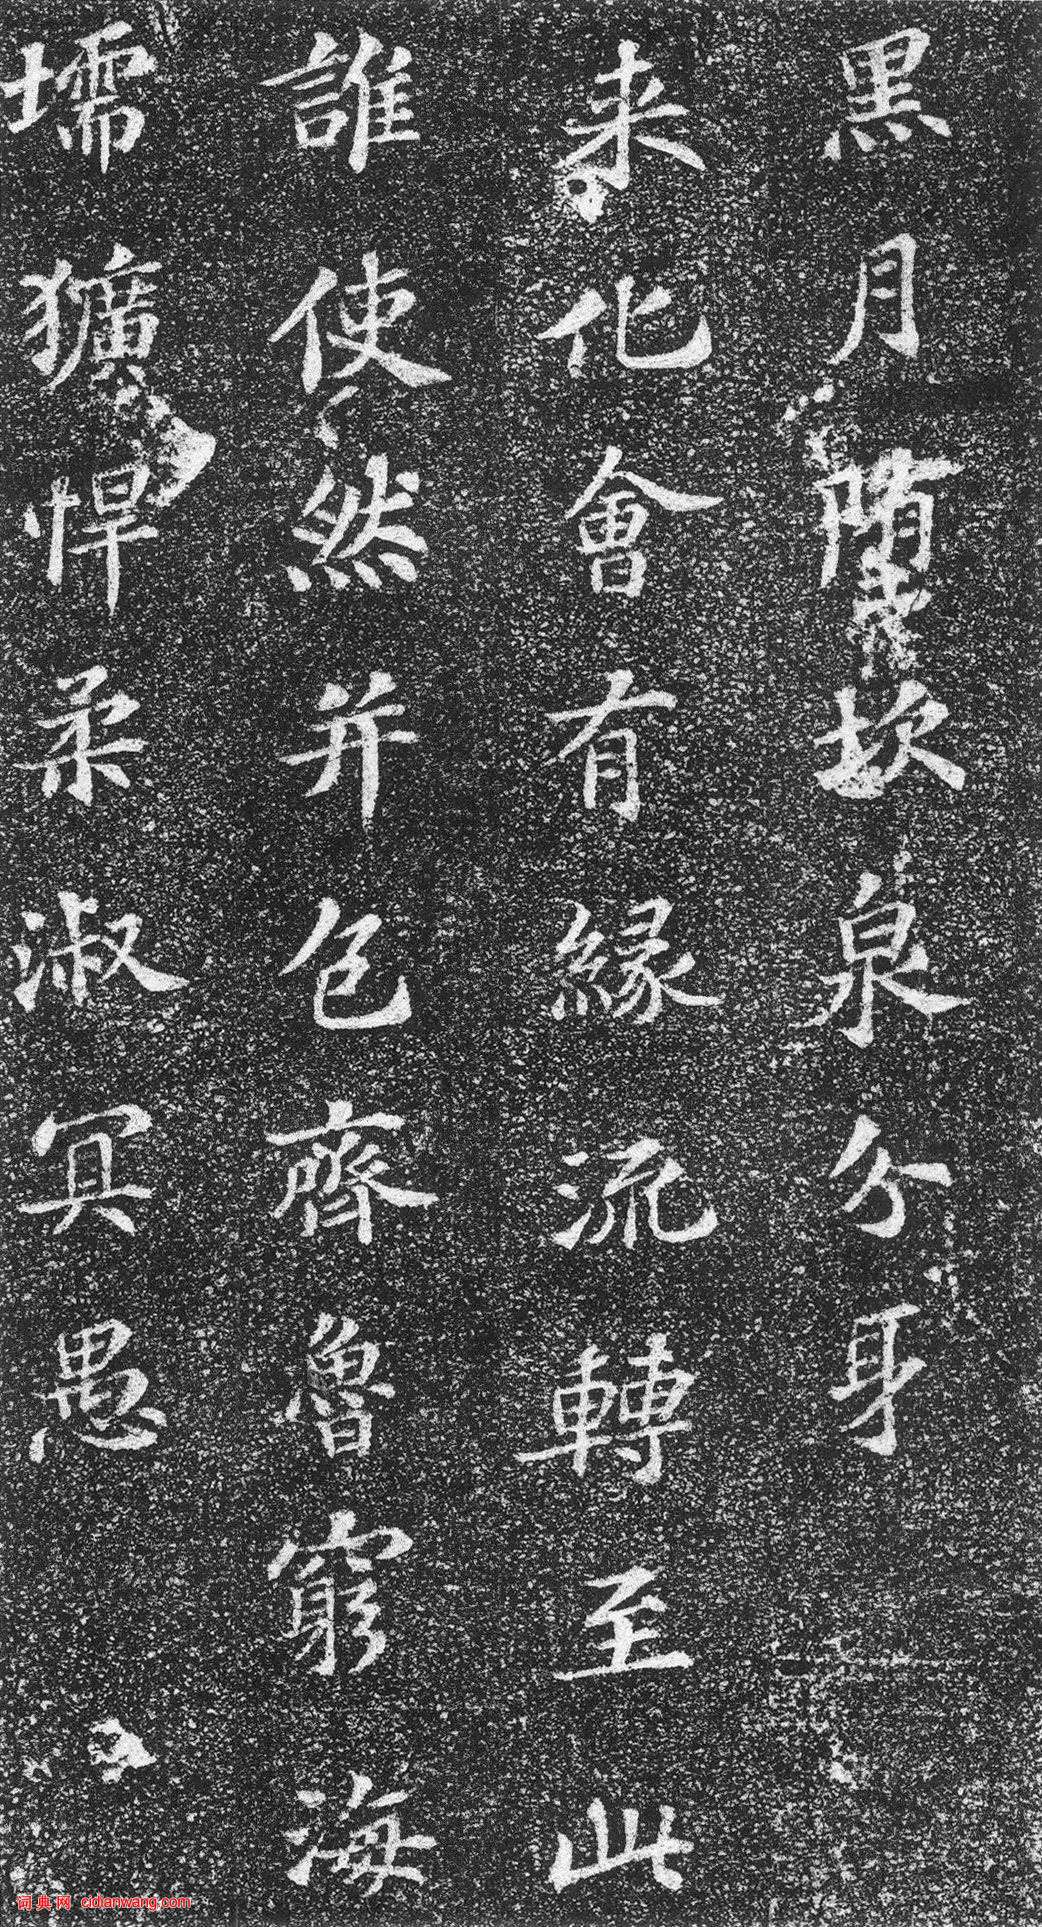 黑月隋坎泉分身
来化會有緣流轉至此
誰使然并包齊魯窮海
壖獷悍柔淑冥愚
词典网 cidianwang.com